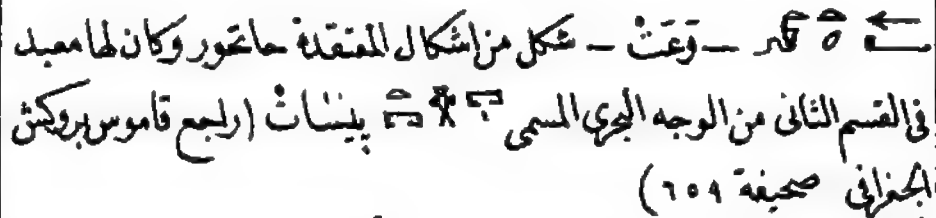 – وَعَتْ – شكل من اشكال المعتقدة حاتحور وكان لها معبد
فى القسم الثانى من الوجه البحرى المسمى پِنْسَاتْ (راجع قاموس بروكش
الجغرافى صحيفة ٦٥٩)